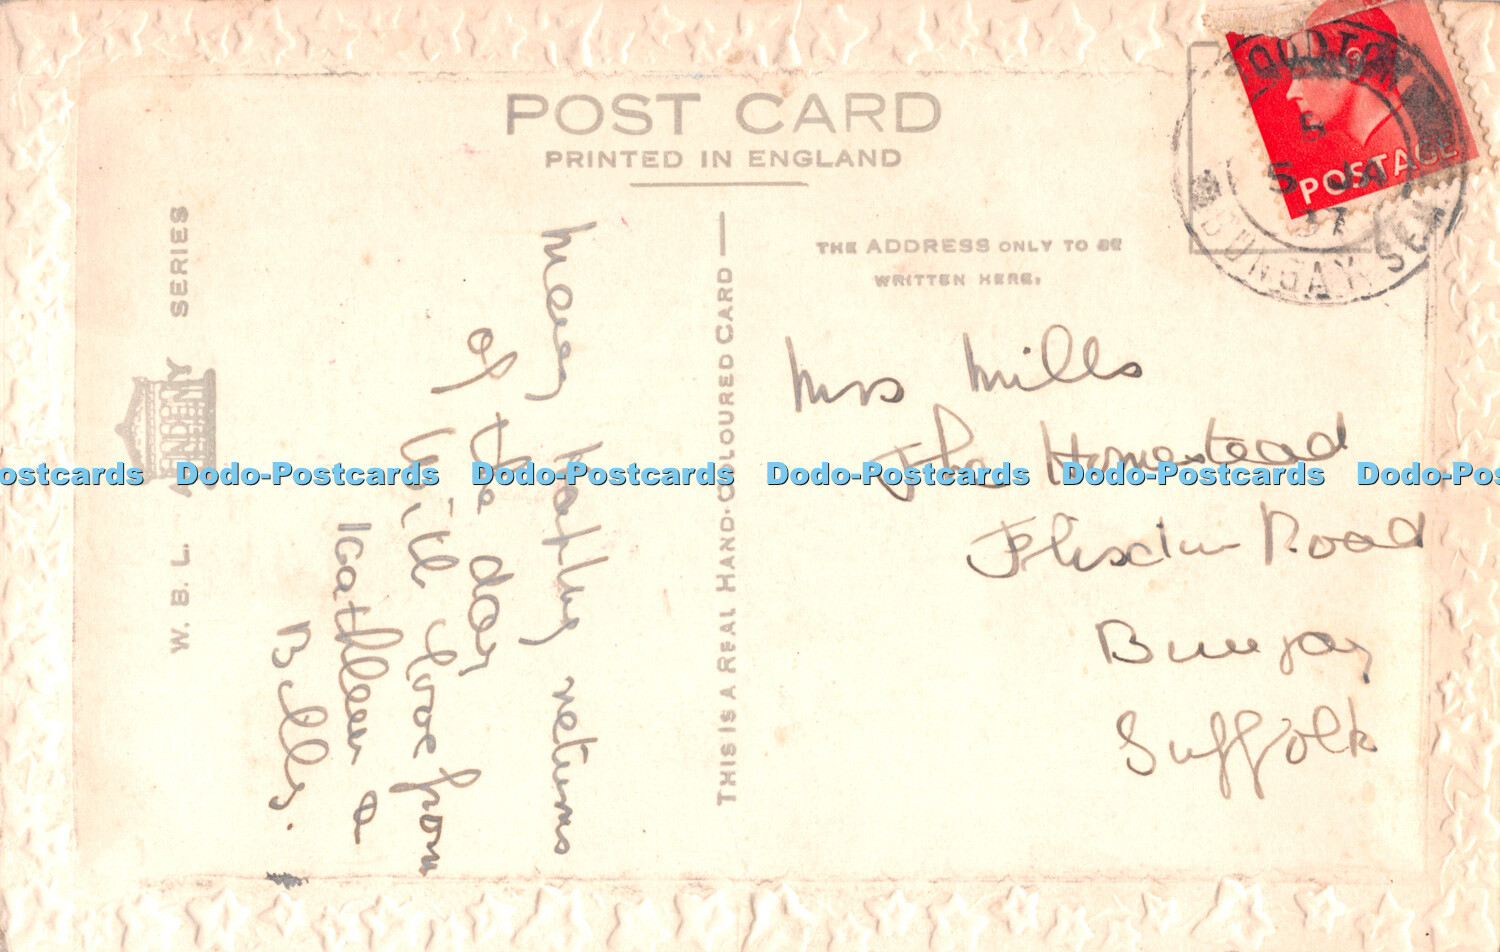 POST CARD
PRINTED IN ENGLAND
THE ADDRESS ONLY TO BE
WRITTEN HERE.
THIS IS A REAL HAND-COLOURED CARD
W. B. L. SERIES
POSTAGE
5
5 JA
37
BUNGAY
Many happy returns
of the day
With love from
Kathleen &
Billy.
Mrs Mills
The Homestead
Road
Bungay
Suffolk
Dodo-Postcards Dodo-Postcards Dodo-Postcards Dodo-Postcards